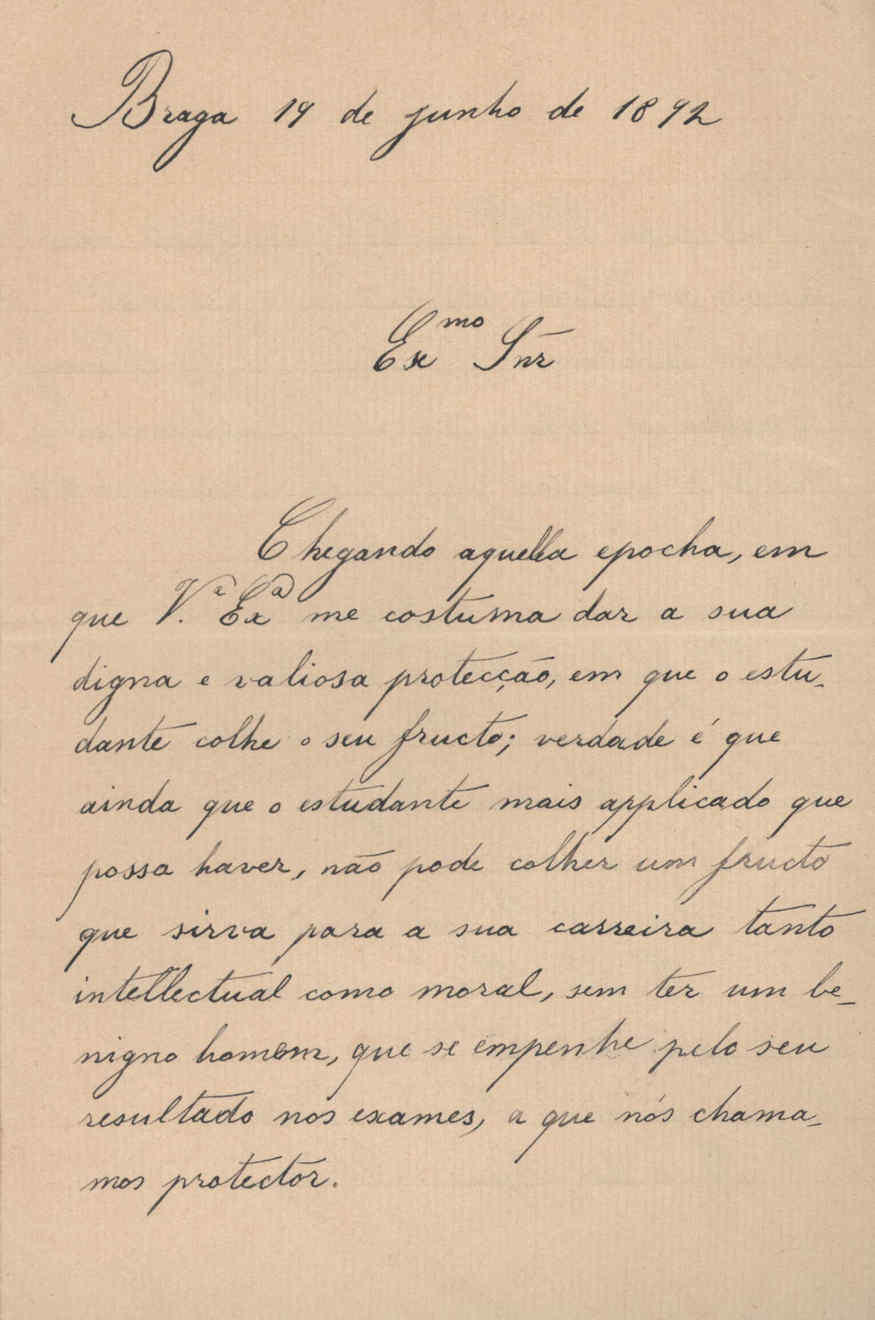 Braga 19 de junho de 1892
Ex^mo Snr
Chegando aquella epocha, em
que V.ª Exª me costuma dar a sua
digna e valiosa protecção, em que o estu-
dante colhe o seu fructo; verdade é que
ainda que o estudante mais applicado que
possa haver, não pode colher um fructo
que sirva para a sua carreira tanto
intellectual como moral, sem ter um be-
nigno homem, que se empenhe pelo seu
resultado nos exames, a que nós chama-
mos protector.